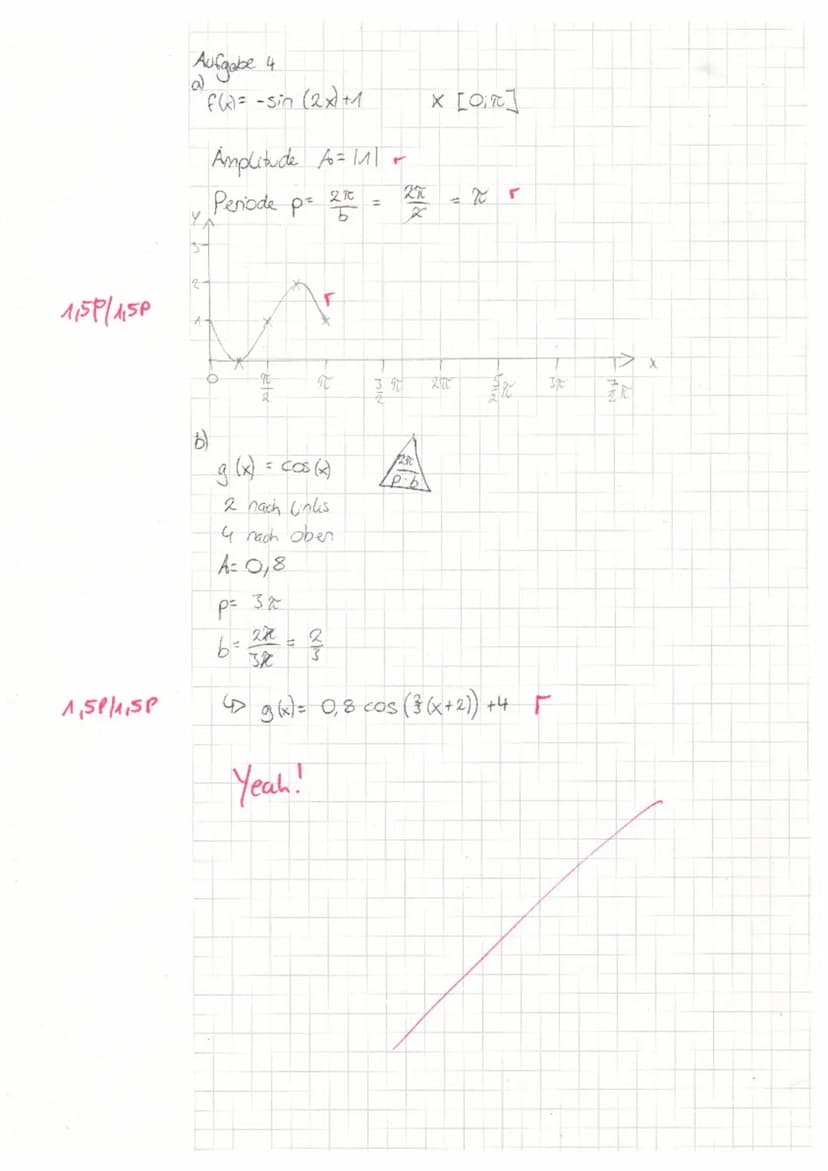 Aufgabe 4
a)
f(x)= -sin (2x)+1 x [0;π]
Amplitude A= |1| r
Periode p= 2π/b = 2π/2 = π r
y
3
2
r
1,5P/1,5P
1
x
0 π/2 π 3/2 π 2π 5/2 π 3π 7/2 π
b)
g(x) = cos(x) 2π/p·b
2 nach links
4 nach oben
A= 0,8
p= 3π
b= 2π/3π = 2/3
1,5P/1,5P ↳ g(x)= 0,8 cos(2/3(x+2)) +4 r
Yeah!